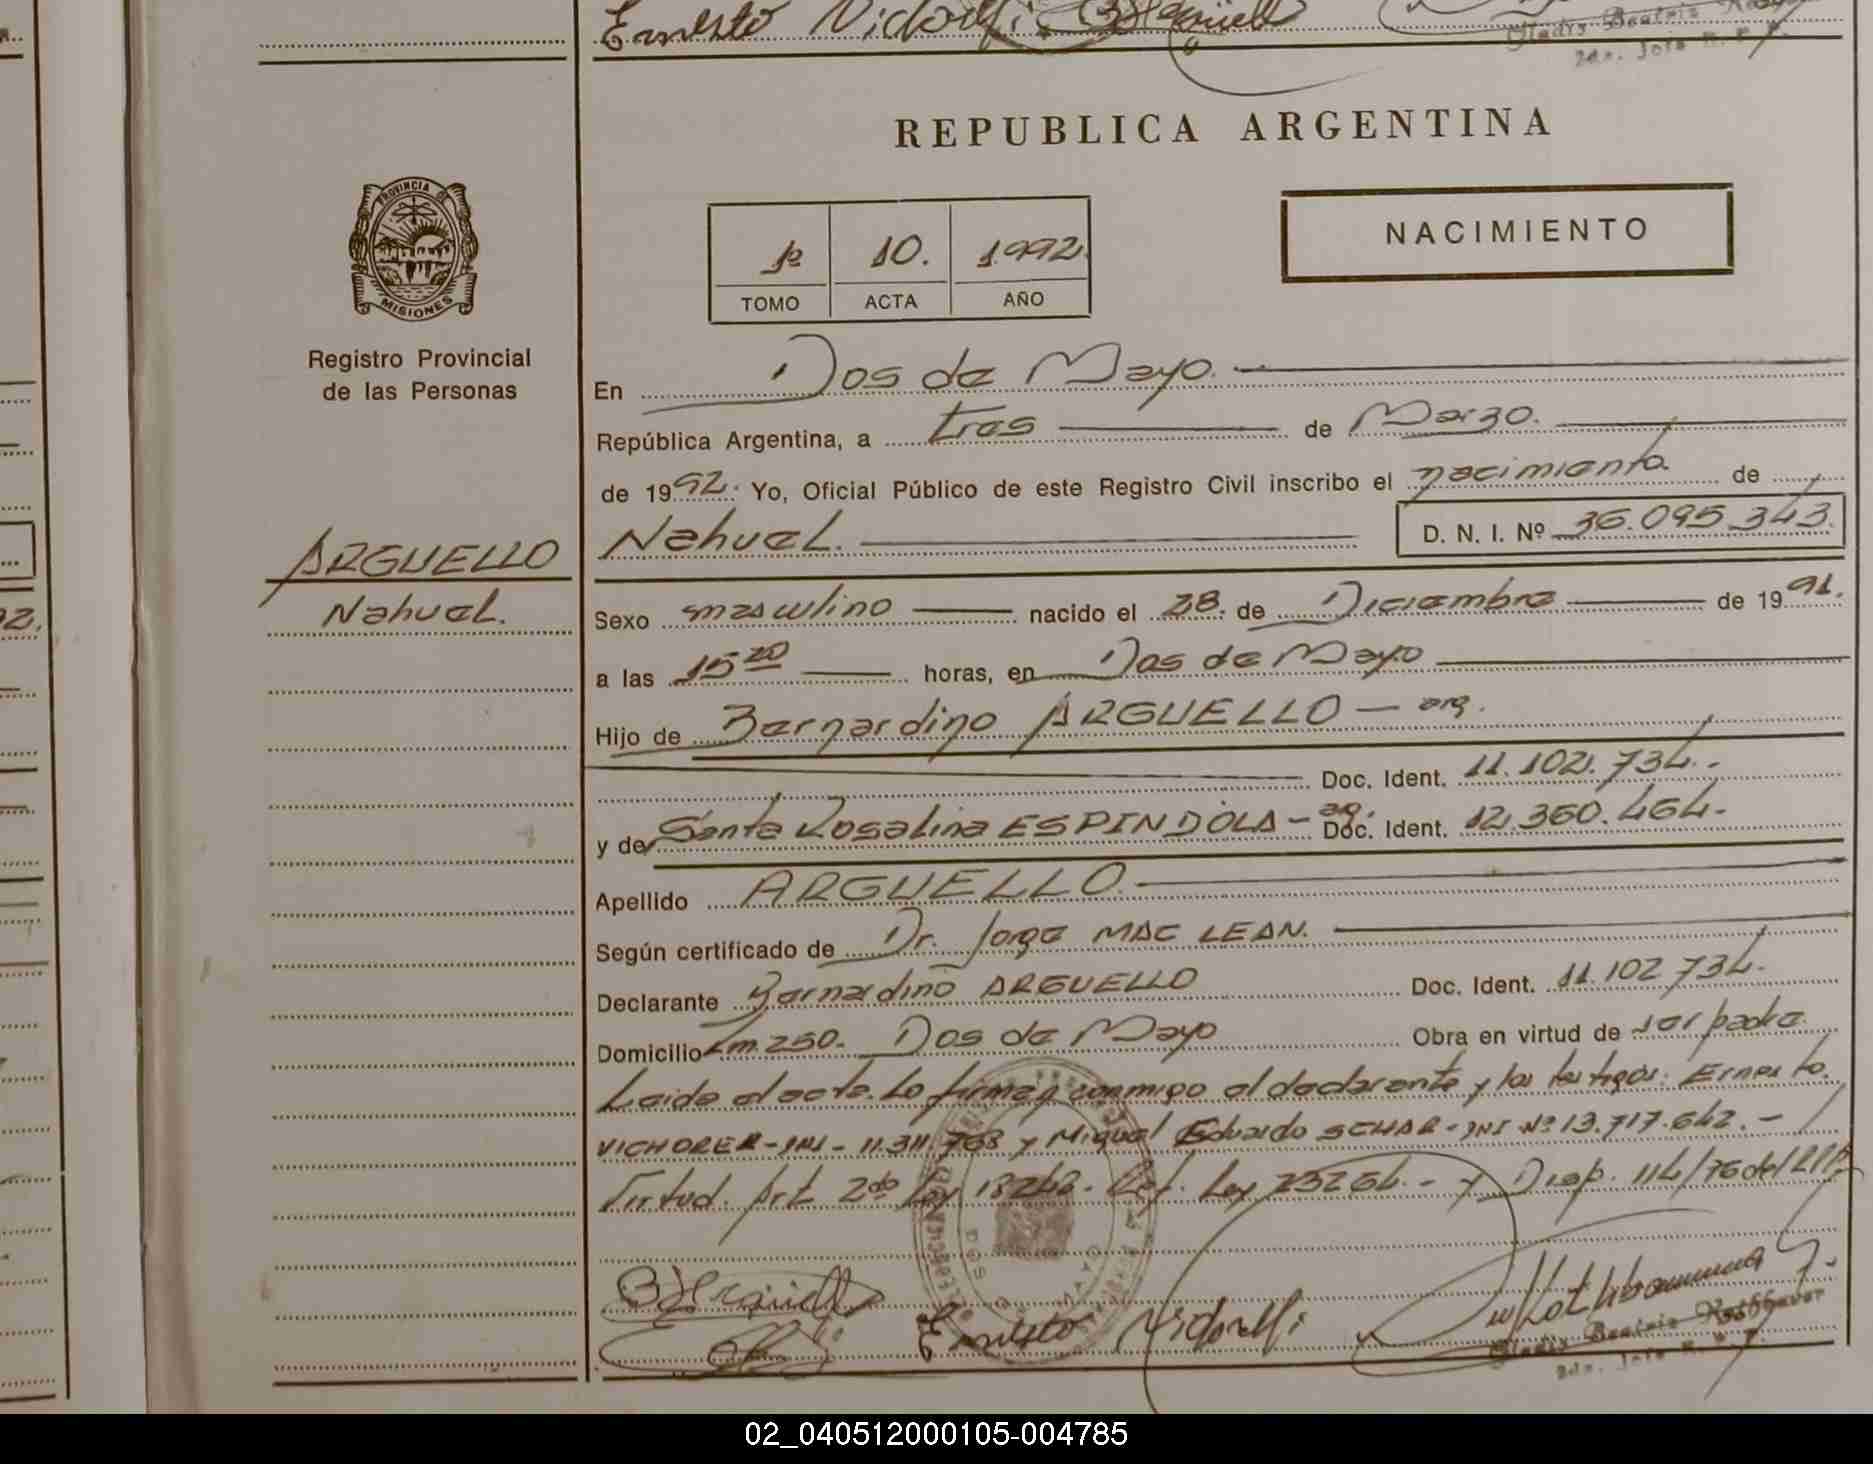 Ernesto
Gladys Beatriz
2do. Jefe R. P. P.
REPUBLICA ARGENTINA
PROVINCIA DE
MISIONES
NACIMIENTO
1º 10. 1992.
TOMO ACTA AÑO
Registro Provincial
de las Personas
En Dos de Mayo.
República Argentina, a tres de Marzo.
de 1992. Yo, Oficial Público de este Registro Civil inscribo el nacimiento de
Nahuel. D. N. I. Nº 36.095.343.
ARGUELLO
Nahuel.
Sexo masculino nacido el 28. de Diciembre de 1991.
a las 15 20 horas, en Dos de Mayo
Hijo de Bernardino ARGUELLO - arg.
Doc. Ident. 11.102.734.-
y de Santa Rosalina ESPINDOLA - arg. Doc. Ident. 12.360.464.-
Apellido ARGUELLO.
Según certificado de Dr. Jorge MAC LEAN.
Declarante Bernardino ARGUELLO Doc. Ident. 11.102.734.
Domicilio Km 250. Dos de Mayo Obra en virtud de ser padre.
Leida el acta. Lo firman conmigo el declarante y los testigos: Ernesto
VICHORER - DNI - 11.311.768 y Miguel Eduardo SCHAR - DNI Nº 13.717.642. -
Virtud. Art 2do Ley 18248. Ref. Ley 23264. - y Disp. 114/76 del RPP
DOS DE MAYO
Ernesto
Gladys Beatriz
2do. Jefe R. P. P.
02_040512000105-004785